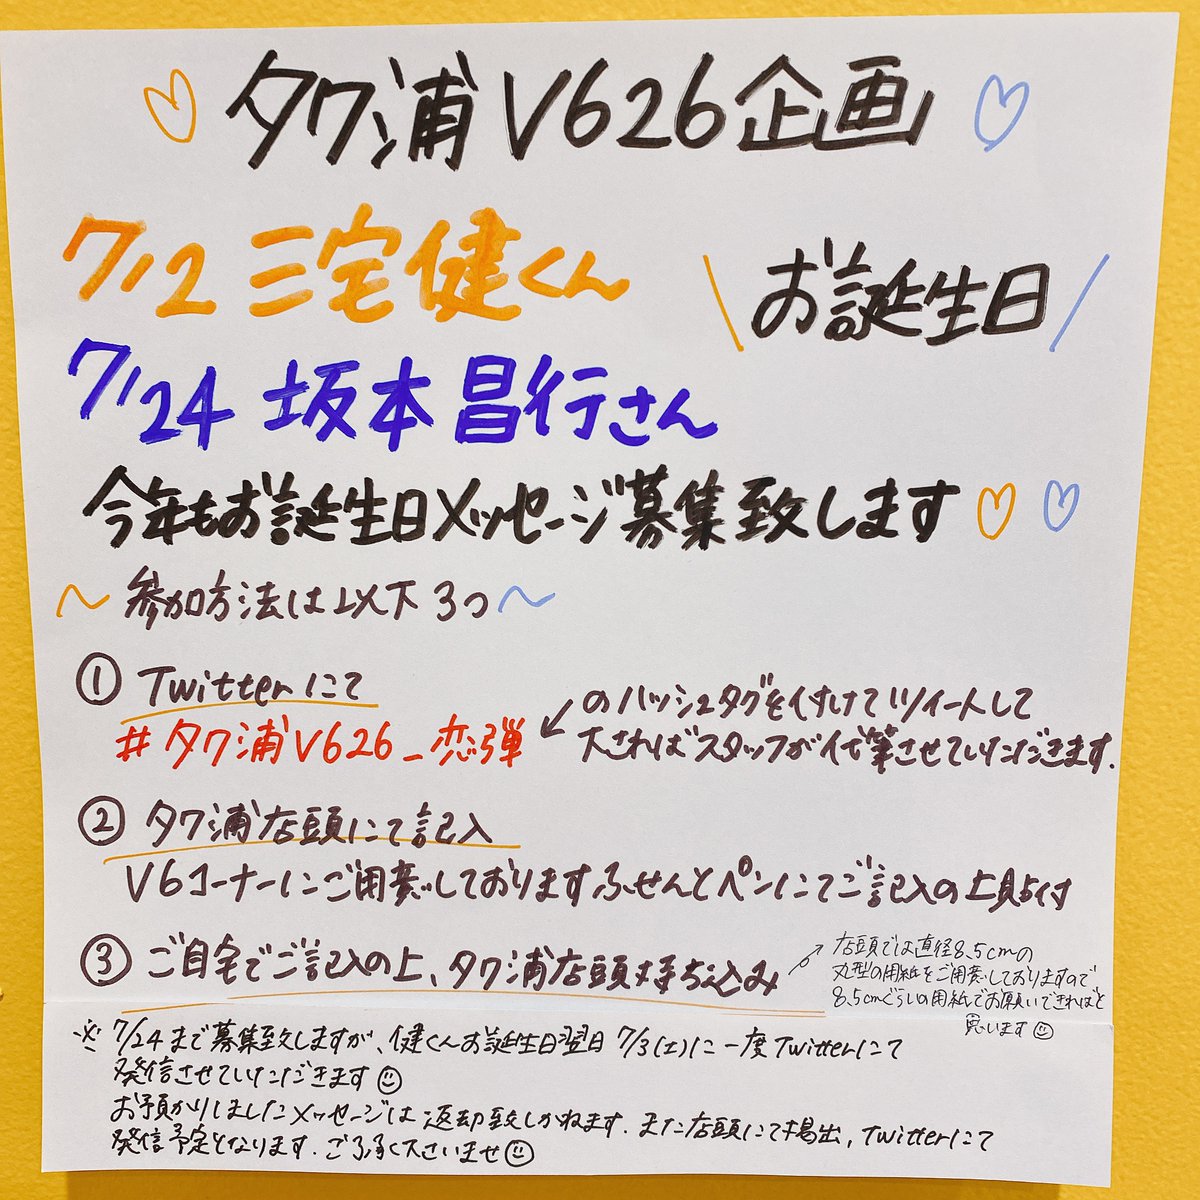 タワ浦V626企画
7/2 三宅健くん
お誕生日
7/24 坂本昌行さん
今年もお誕生日メッセージ募集致します
〜参加方法は以下3つ〜
① Twitterにて
#タワ浦V626_恋弾
のハッシュタグを付けてツイートして
下さればスタッフが代筆させていただきます.
② タワ浦店頭にて記入
V6コーナーにご用意しておりますふせんとペンにてご記入の上貼付
③ ご自宅でご記入の上、タワ浦店頭持ち込み
店頭では直径8.5cmの
丸型の用紙をご用意しておりますので
8.5cmぐらいの用紙でお願いできればと
思います
※ 7/24まで募集致しますが、健くんお誕生日翌日 7/3(土)に一度Twitterにて
発信させていただきます
お預かりしましたメッセージは返却致しかねます. また店頭にて掲出, Twitterにて
発信予定となります. ご了承くださいませ